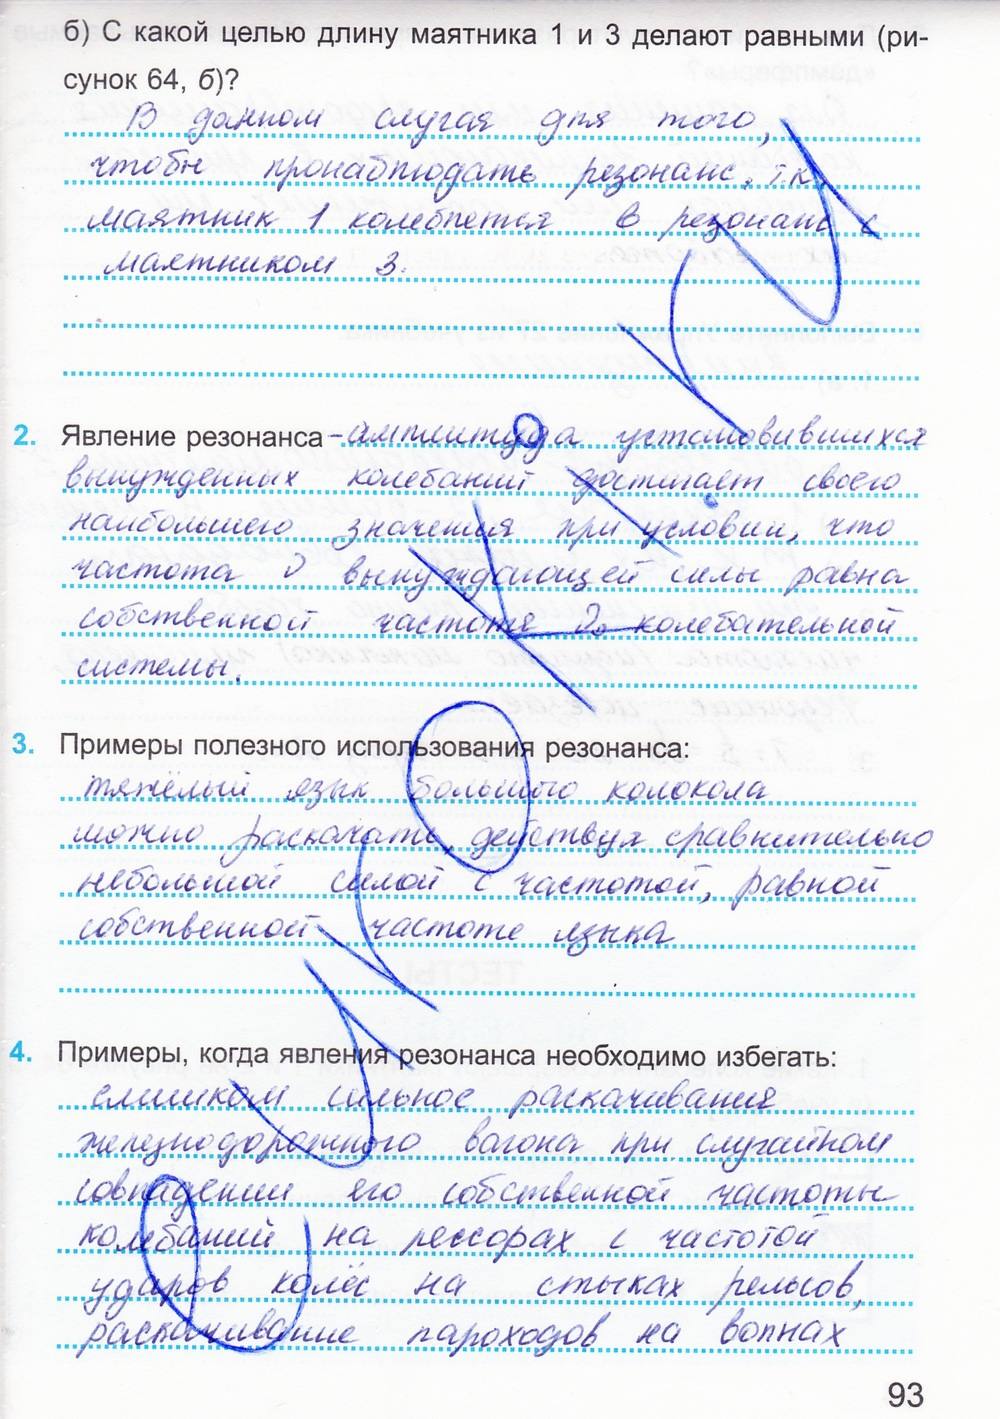 б) С какой целью длину маятника 1 и 3 делают равными (ри-
сунок 64, б)?
В данном случая для того,
чтобы пронаблюдать резонанс, т.к.
маятник 1 колеблется в резонанс с
маятником 3.
2. Явление резонанса - амплитуда установившихся
вынужденных колебаний достигает своего
наибольшего значения при условии, что
частота ν вынуждающей силы равна
собственной частоте ν₀ колебательной
системы.
3. Примеры полезного использования резонанса:
тяжёлый язык большого колокола
можно раскачать, действуя сравнительно
небольшой силой с частотой, равной
собственной частоте языка
4. Примеры, когда явления резонанса необходимо избегать:
слишком сильное раскачивания
железнодорожного вагона при случайном
совпадении его собственной частоты
колебаний на рессорах с частотой
ударов колёс на стыках рельсов,
раскачивание пароходов на волнах
93